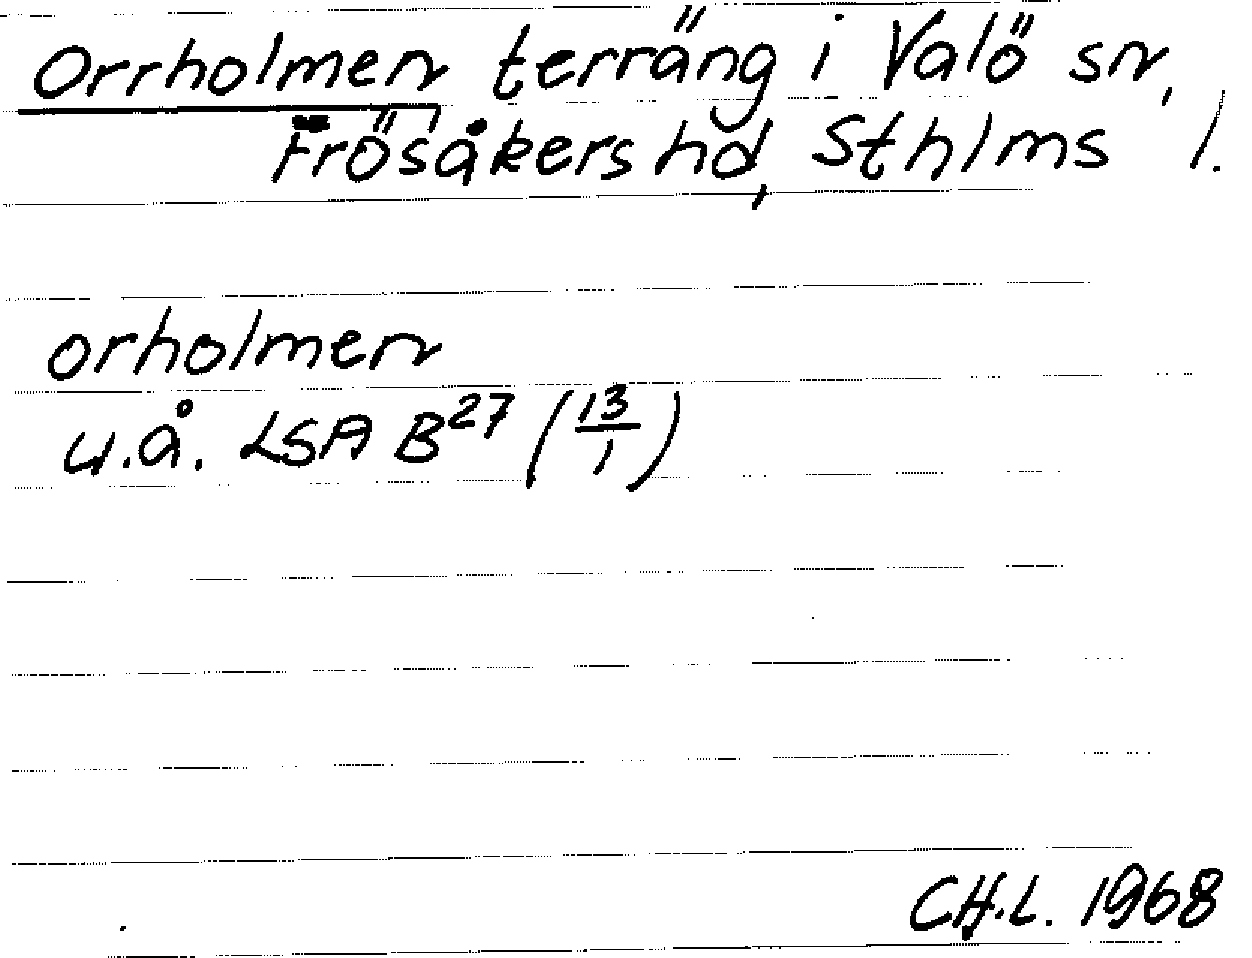 Orrholmen terräng i Valö sn,
Frösåkers hd, Sthlms l.
orholmen
u.å. LSA B27 (13/1)
CH.L. 1968